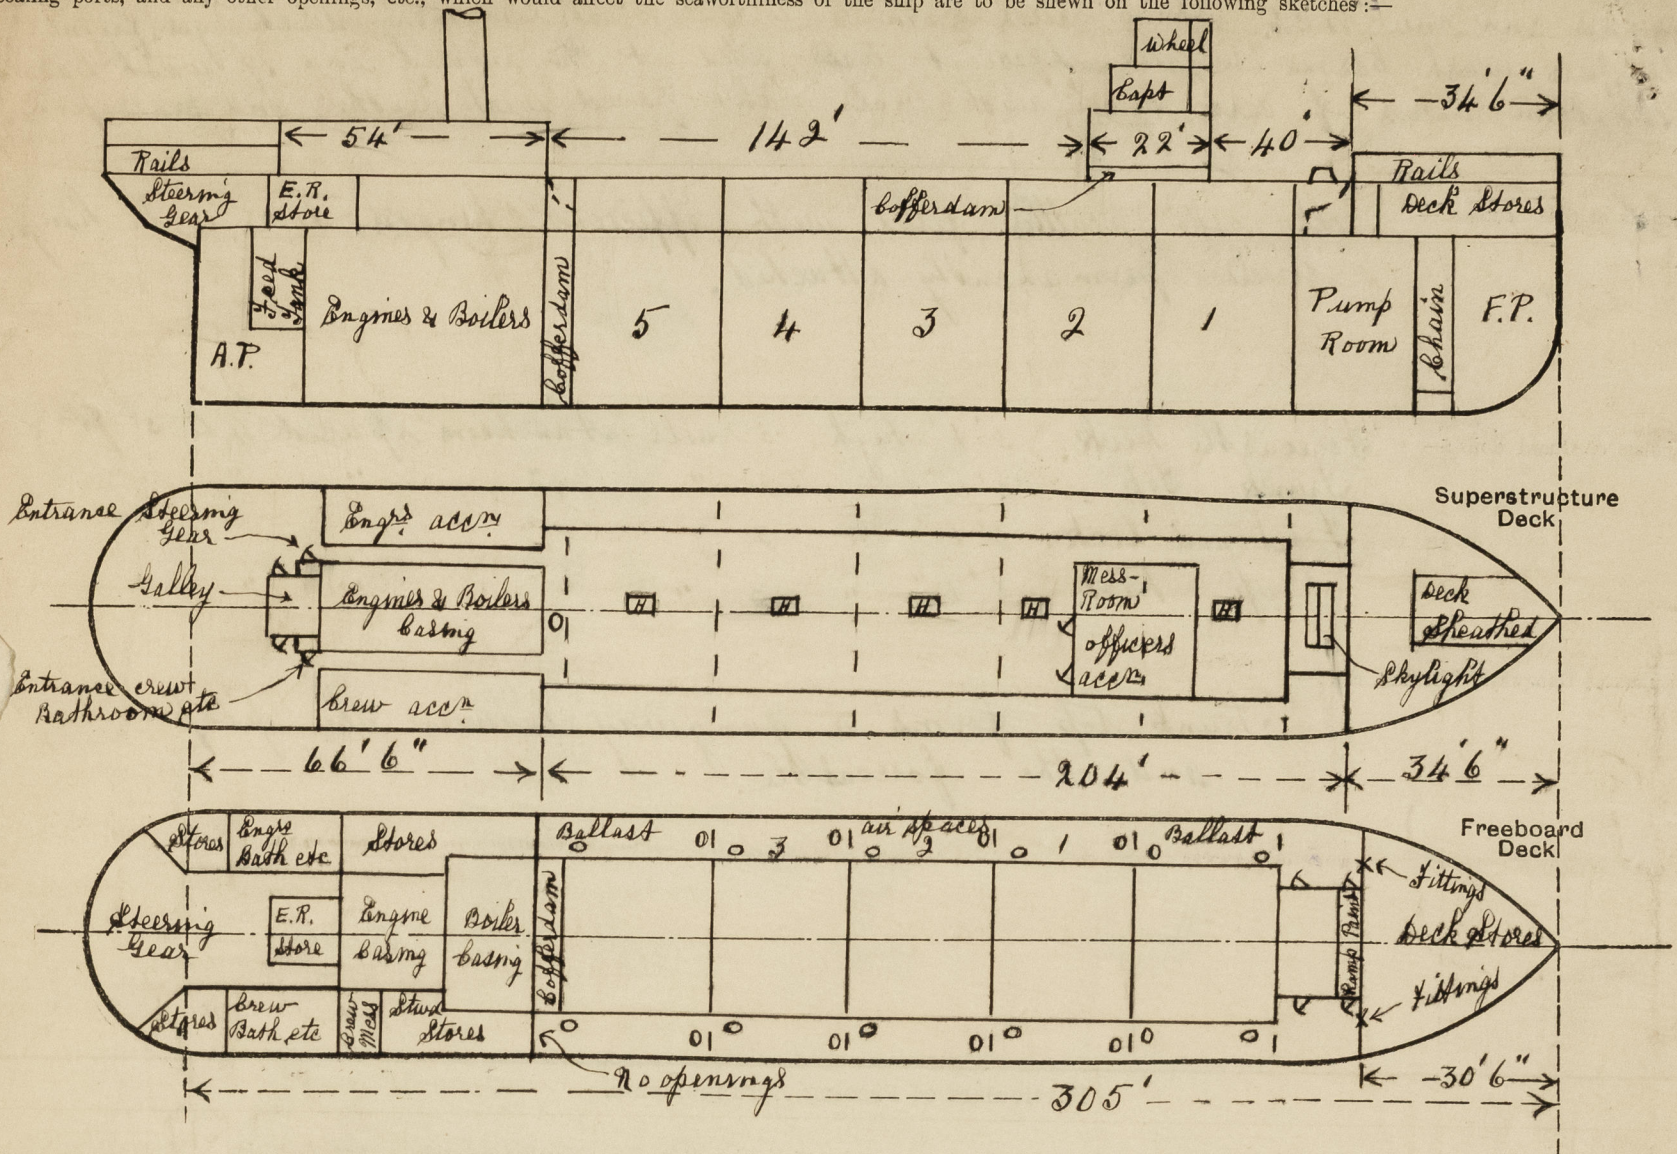 sealing ports, and any other openings, etc., which would affect the seaworthiness of the ship are to be shewn on the following sketches:—
Wheel
Capt
34' 6"
54'
142'
22'
40'
Rails
Rails
Steering
Gear
E.R.
Store
Cofferdam
Deck Stores
Feed
Tank
Engines & Boilers
Cofferdam
5
4
3
2
1
Pump
Room
Chain
F.P.
A.P.
Superstructure
Deck
Entrance Steering
Gear
Engrs. accn.
Galley
Engines & Boilers
Casing
H
H
H
H
H
Mess-
Room
officers
accn.
Deck
Sheathed
Skylight
Entrance crew
Bathroom etc
Crew accn
66' 6"
204'
34' 6"
Freeboard
Deck
Stores
Engrs
Bath etc
Stores
Ballast
3
air spaces
2
1
Ballast
Fittings
Steering
Gear
E.R.
Store
Engine
Casing
Boiler
Casing
Cofferdam
Deck Stores
Lamp Paint
Fittings
Stores
Crew
Bath etc
Crew
Mess
Stwd
Stores
No openings
30' 6"
305'